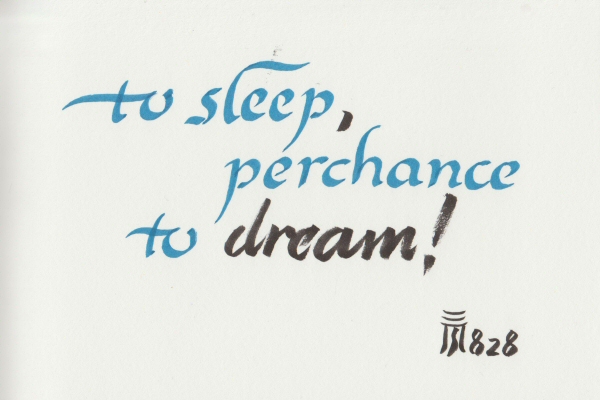 to sleep,
perchance
to dream!
828